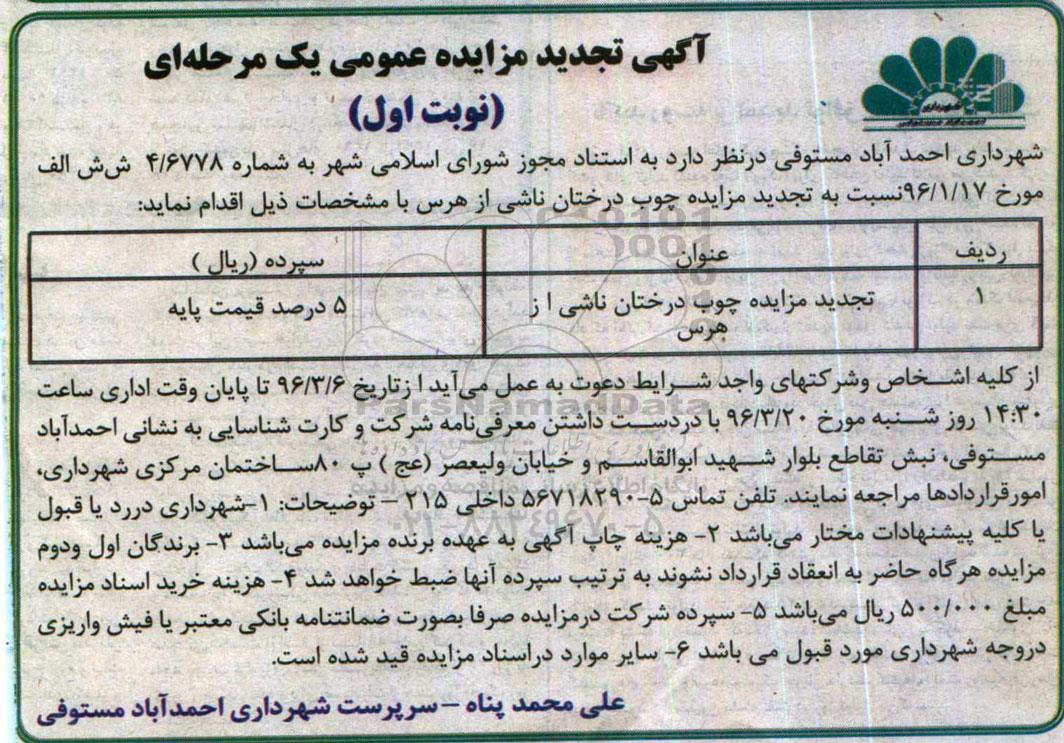 آگهی تجدید مزایده عمومی یک مرحله‌ای
(نوبت اول)
شهرداری
شهرداری احمد آباد مستوفی درنظر دارد به استناد مجوز شورای اسلامی شهر به شماره ۴/۶۷۷۸ ش‌ش الف
مورخ ۹۶/۱/۱۷نسبت به تجدید مزایده چوب درختان ناشی از هرس با مشخصات ذیل اقدام نماید:
ردیف عنوان سپرده (ریال )
۱ تجدید مزایده چوب درختان ناشی ا ز ۵ درصد قیمت پایه
هرس
از کلیه اشخاص وشرکتهای واجد شرایط دعوت به عمل می‌آید ا زتاریخ ۹۶/۳/۶ تا پایان وقت اداری ساعت
۱۴:۳۰ روز شنبه مورخ ۹۶/۳/۲۰ با دردست داشتن معرفی‌نامه شرکت و کارت شناسایی به نشانی احمدآباد
ParsNamadData
مستوفی، نبش تقاطع بلوار شهید ابوالقاسم و خیابان ولیعصر (عج ) پ ۸۰ساختمان مرکزی شهرداری،
امورقراردادها مراجعه نمایند. تلفن تماس ۵-۵۶۷۱۸۲۹۰ داخلی ۲۱۵ – توضیحات: ۱-شهرداری دررد یا قبول
یا کلیه پیشنهادات مختار می‌باشد ۲- هزینه چاپ آگهی به عهده برنده مزایده می‌باشد ۳- برندگان اول ودوم
مزایده هرگاه حاضر به انعقاد قرارداد نشوند به ترتیب سپرده آنها ضبط خواهد شد ۴- هزینه خرید اسناد مزایده
مبلغ ۵۰۰/۰۰۰ ریال می‌باشد ۵- سپرده شرکت درمزایده صرفا بصورت ضمانتنامه بانکی معتبر یا فیش واریزی
دروجه شهرداری مورد قبول می باشد ۶- سایر موارد دراسناد مزایده قید شده است.
علی محمد پناه – سرپرست شهرداری احمدآباد مستوفی